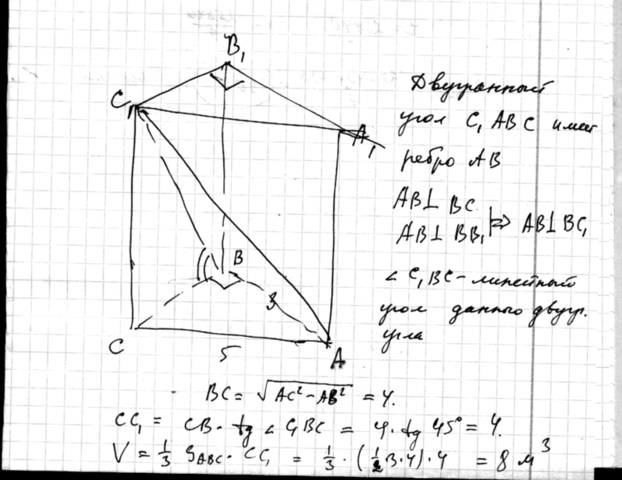 B₁
C₁
A₁
B
3
C
5
A
Двугранный
угол C₁ABC имеет
ребро AB
AB⊥ BC
AB⊥ BB₁ |⇒ AB⊥BC₁
∠C₁BC - линейный
угол данного двугр.
угла
BC = √AC²-AB² = 4.
CC₁ = CB · tg ∠C₁BC = 4 · tg 45° = 4.
V = 1/3 S_ABC · CC₁ = 1/3 · (1/2 3·4) · 4 = 8 м³